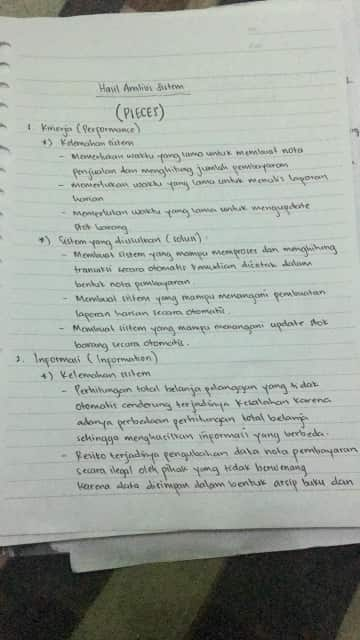 Hasil Analisis Sistem
(PIECES)
1. Kinerja (Performance)
*) Kelemahan sistem
- Memerlukan waktu yang lama untuk membuat nota
penjualan dan menghitung jumlah pembayaran
- memerlukan waktu yang lama untuk menulis laporan
harian
- Memerlukan waktu yang lama untuk mengupdate
stok barang
*) Sistem yang diusulkan (solusi).
- Membuat sistem yang mampu memproses dan menghitung
transaksi secara otomatis kemudian dicetak dalam
bentuk nota pembayaran.
- Membuat sistem yang mampu menangani pembuatan
laporan harian secara otomatis.
- Membuat sistem yang mampu menangani update stok
barang secara otomatis.
2. Informasi (Information)
*) Kelemahan sistem
- Perhitungan total belanja pelanggan yang tidak
otomatis cenderung terjadinya kesalahan karena
adanya perbedaan perhitungan total belanja
sehingga menghasilkan informasi yang berbeda.
- Resiko terjadinya pengubahan data nota pembayaran
secara ilegal oleh pihak yang tidak berwenang
karena data disimpan dalam bentuk arsip buku dan